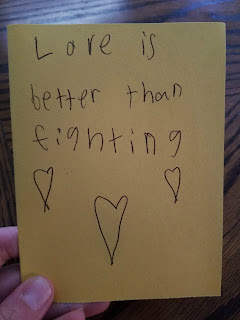 Love is
better than
fighting